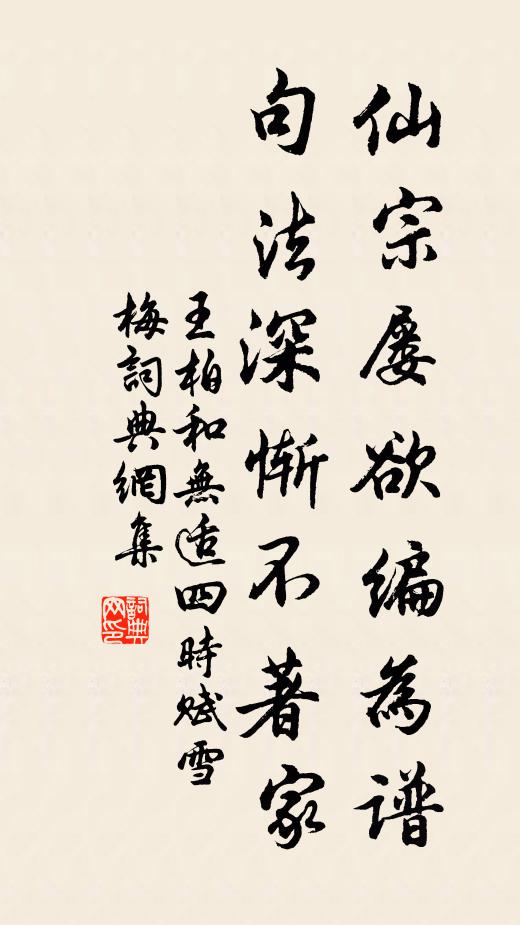 仙宗屡欲编為谱
句法深惭不著家
王柏和無适四時赋雪
梅詞典網集
詞典网印